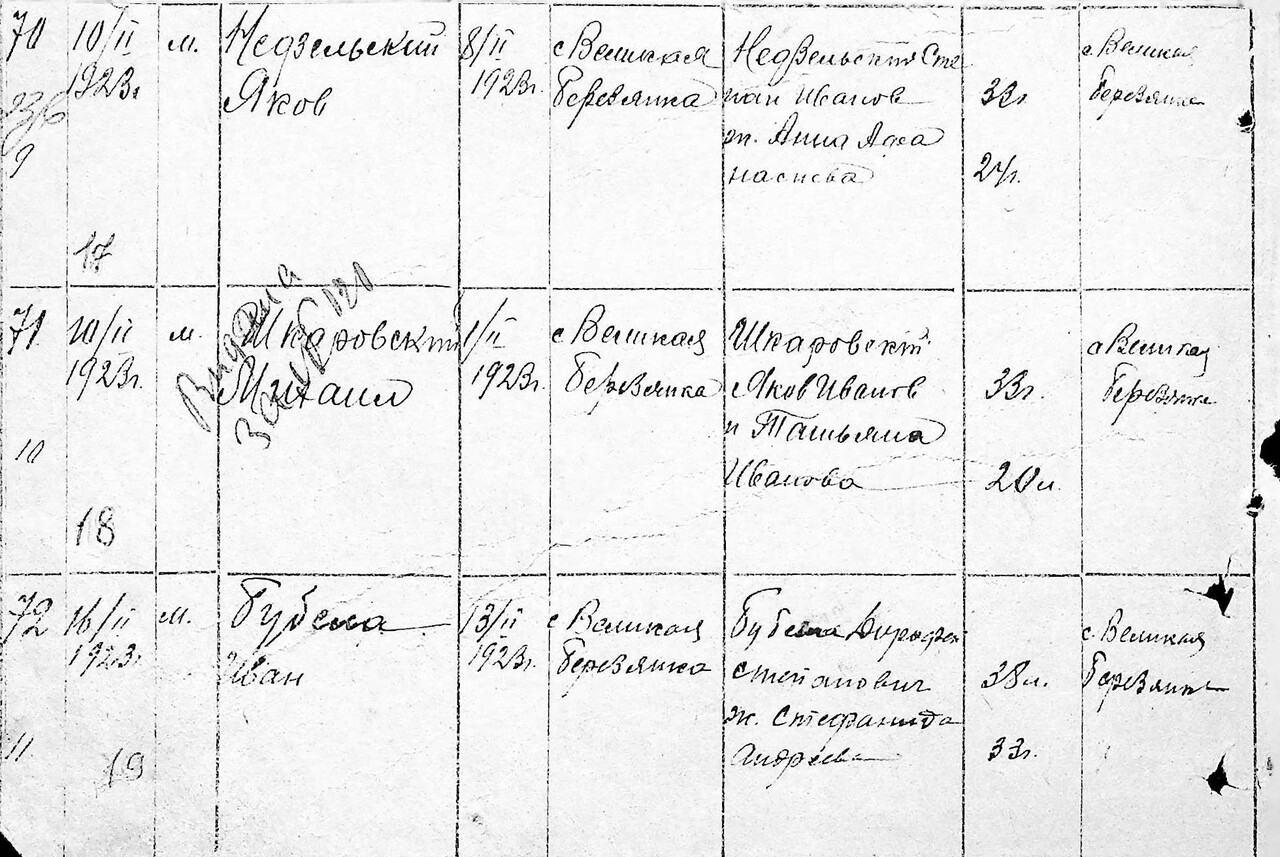 70
236
9
10/II
1923г
17
м.
Недзельский
Яков
8/II
1923г.
с Великая
Березянка
Недзельский Сте
пан Иванов
ж. Анна Афа
насиева
33г
27г.
с Великая
Березянка
71
10
10/II
1923г.
18
м.
Видана
Шкаровский
Михаил
1/II
1923г.
с Великая
Березянка
Шкаровский
Яков Иванов
и Татьяна
Иванова
33г.
20л.
с Великая
Березянка
72
11
16/II
1923г.
19
м.
Бубела
Иван
13/II
1923г.
с Великая
Березянка
Бубела Дорофей
Степанович
ж. Стефанида
Андреева
38л.
33г.
с. Великая
Березянка